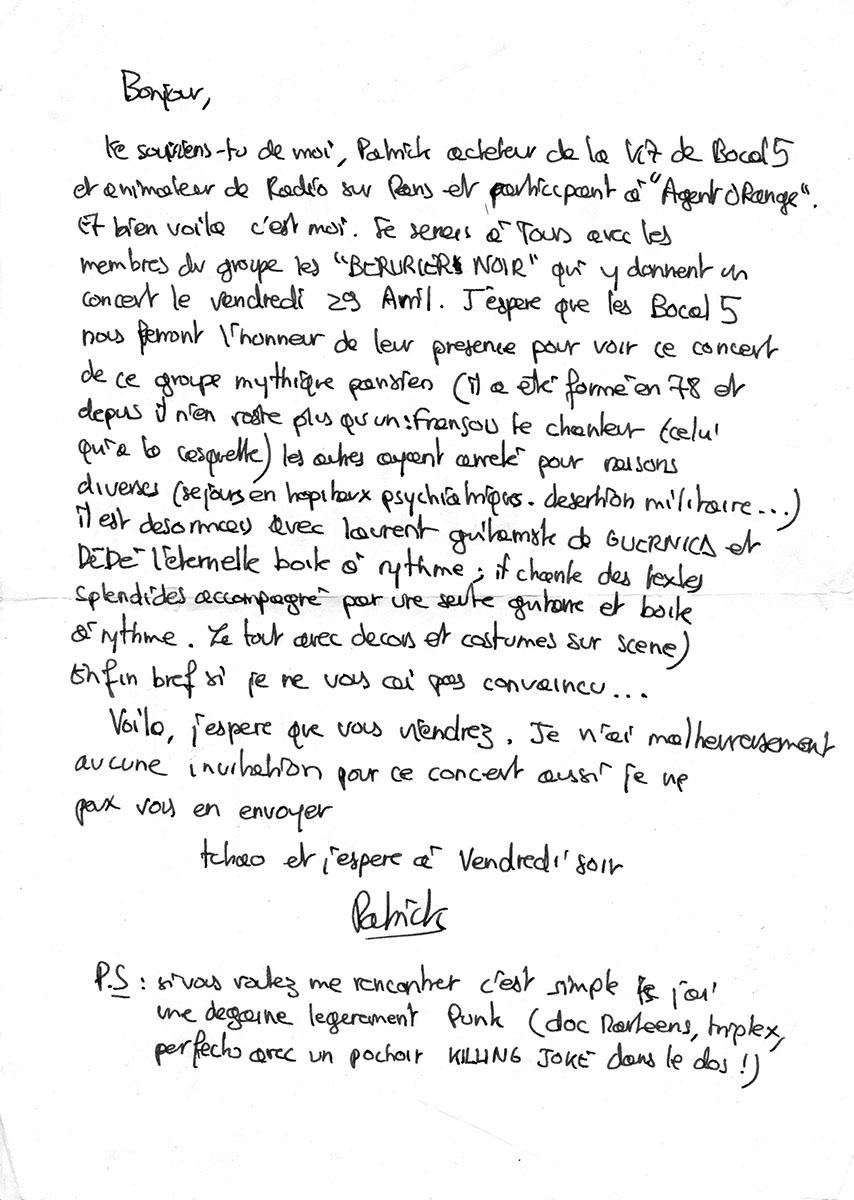 Bonjour,
te souviens-tu de moi, Patrick acheteur de la K7 de Bocal 5
et animateur de Radio sur Paris et participant à "Agent ORange".
Et bien voila c'est moi. Je serais à Tours avec les
membres du groupe les "BERURIERS NOIR" qui y donnent un
concert le vendredi 29 Avril. J'espère que les Bocal 5
nous feront l'honneur de leur presence pour voir ce concert
de ce groupe mythique parisien (il a été formé en 78 et
depuis il n'en reste plus qu'un : françou le chanteur (celui
qui a la casquette) les autres ayant arreté pour raisons
diverses (sejours en hopitaux psychiatriques. desertion militaire...)
il est desormais avec laurent guitariste de GUERNICA et
DEDE l'eternelle boite à rythme ; il chante des textes
splendides accompagné par une seule guitare et boite
à rythme. Le tout avec decors et costumes sur scene)
Enfin bref si je ne vous ai pas convaincu...
Voila, j'espere que vous viendrez. Je n'ai malheureusement
aucune invitation pour ce concert aussi je ne
peux vous en envoyer
tchao et j'espere à Vendredi soir
Patrick
P.S : si vous voulez me rencontrer c'est simple j'ai
une degaine legerement Punk (doc Marteens, triplex,
perfecto avec un pochoir KILLING JOKE dans le dos !)